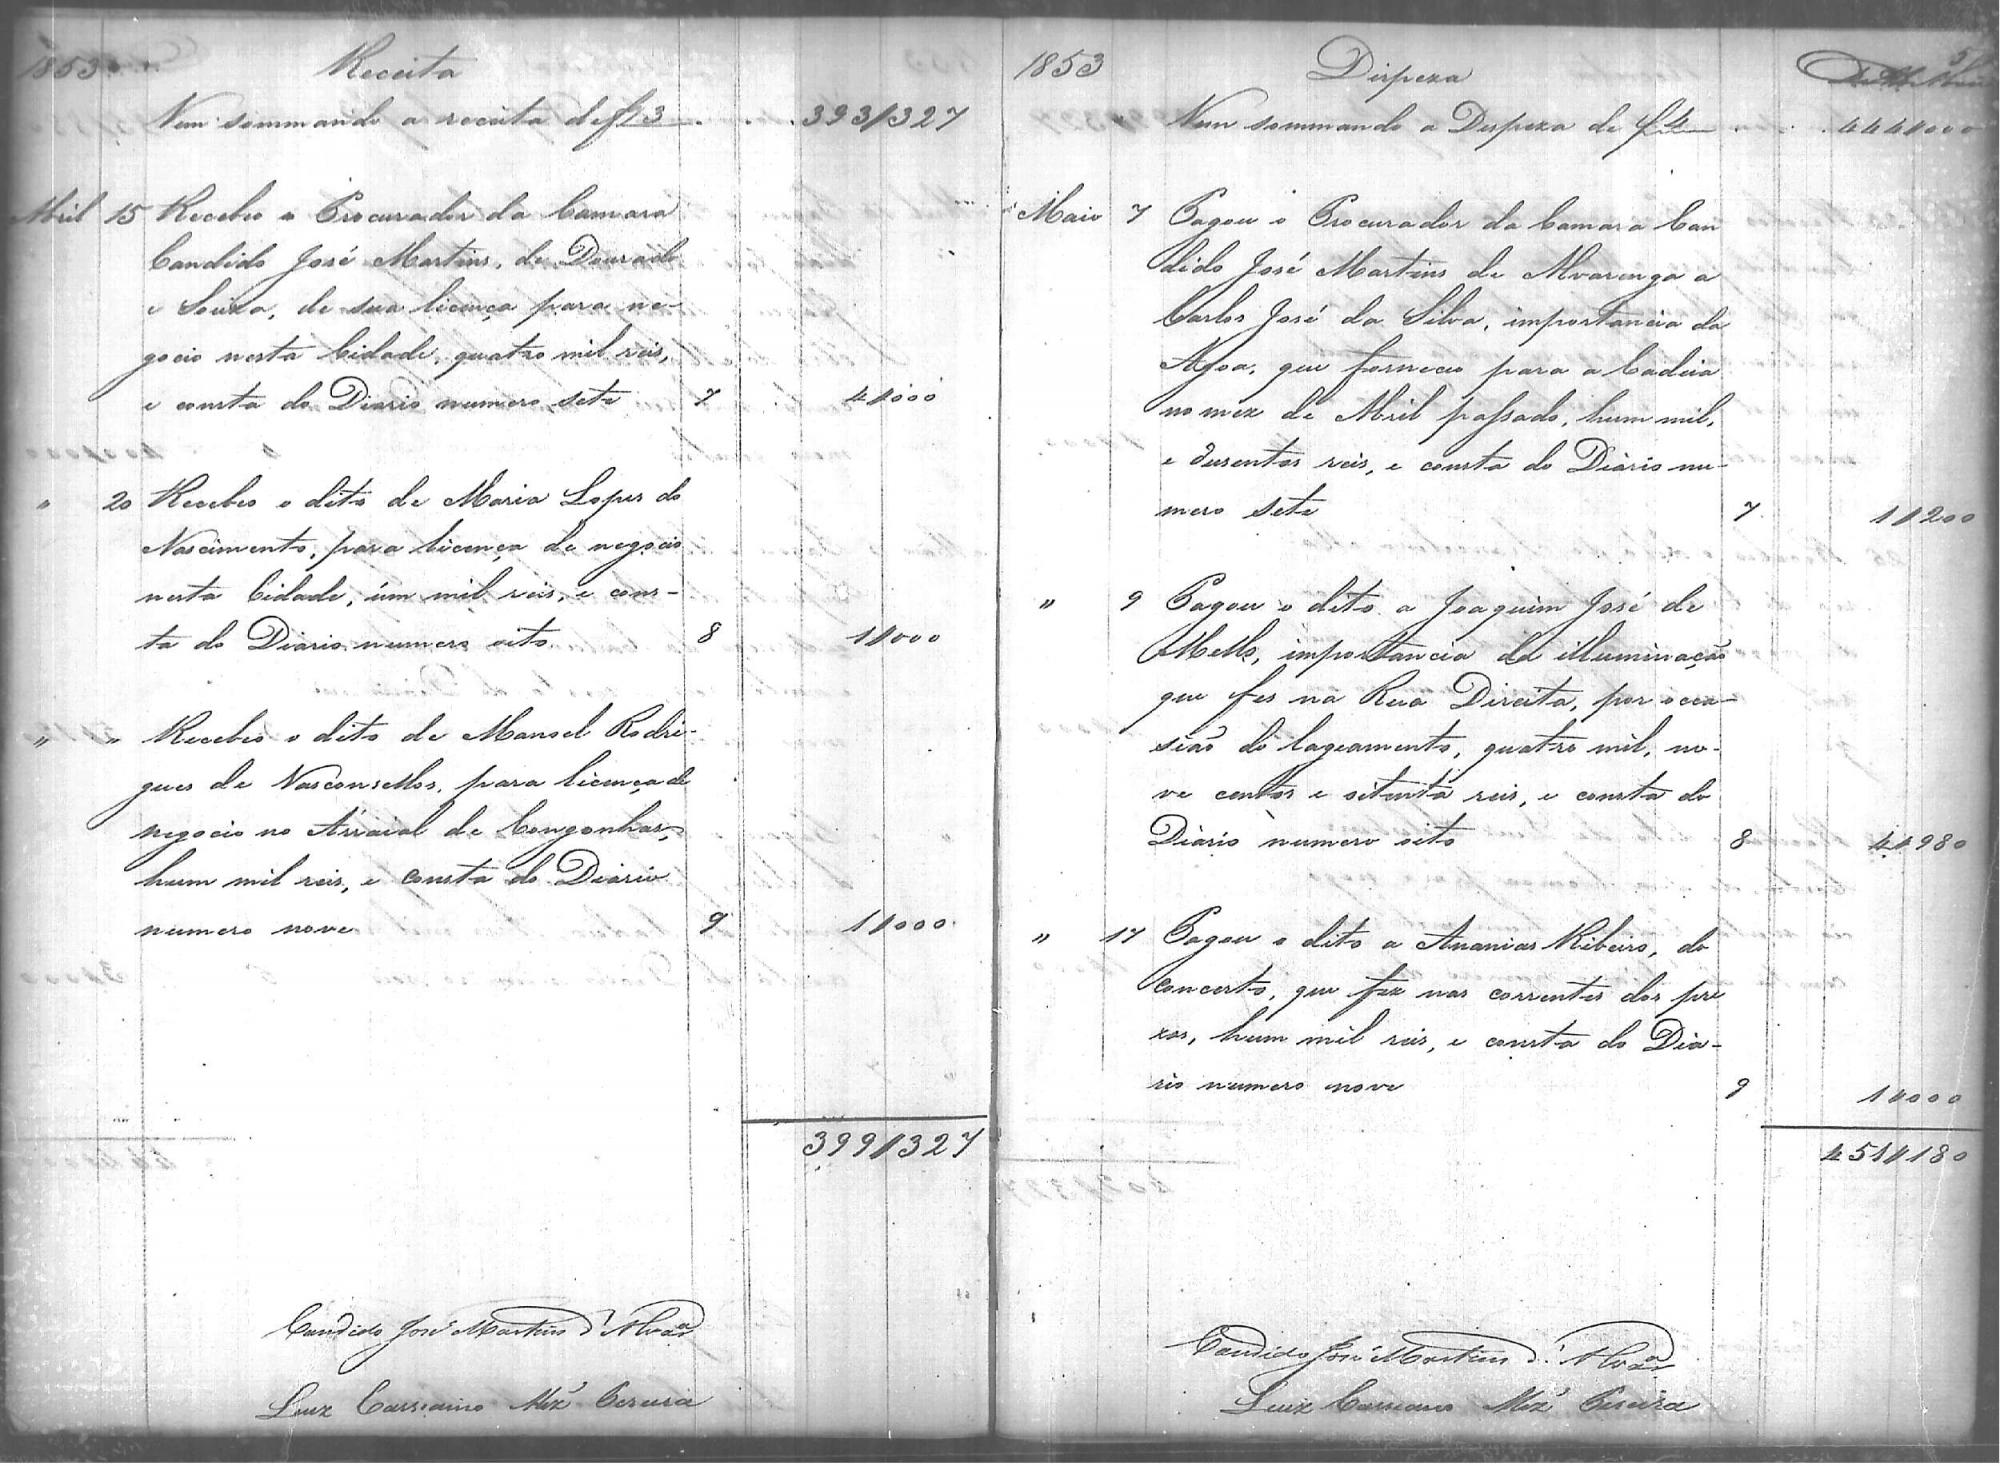 1853 Receita
Vem sommando a receita de f 3 393//327
Abril 15 Recebeo o Procurador da Camara
Candido José Martins, de Dourado
e Souza, de sua licença para ne-
gocio nesta Cidade, quatro mil reis,
e consta do Diario numero sete 7 4//000
" 20 Recebeo o dito de Maria Lopes do
Nascimento, para licença de negocio
nesta Cidade, úm mil reis, e cons-
ta do Diario numero oito. 8 1//000
" " Recebeo o dito de Manoel Rodri-
gues de Vasconsellos, para licença de
negocio no Arraial de Congonhas,
hum mil reis, e consta do Diario
numero nove 9 1//000
399//327
Candido José Martins d'Alvaª
Luiz Cassiano Miz Pereira
1853 Dispeza 5
Vem sommando a Despeza de f 4 444//000
Maio 7 Pagou o Procurador da Camara Can
dido José Martins de Alvarenga a
Carlos José da Silva, importancia da
Agoa, que forneceo para a Cadeia
no mez de Abril passado, hum mil,
e dusentos reis, e consta do Diario nu-
mero sete 7 1//200
" 9 Pagou o dito a Joaquim José de
Mello, importancia da illuminação
que fes na Rua Direita, por occa-
sião do lageamento, quatro mil, no-
ve centos e oitenta reis, e consta do
Diario numero oito 8 4//980
" 17 Pagou o dito a Ananias Ribeiro, do
concerto, que fez nas correntes dos pre
zos, hum mil reis, e consta do Dia-
rio numero nove 9 1//000
451//180
Candido José Martins d'Alvaª
Luiz Cassiano Miz Pereira